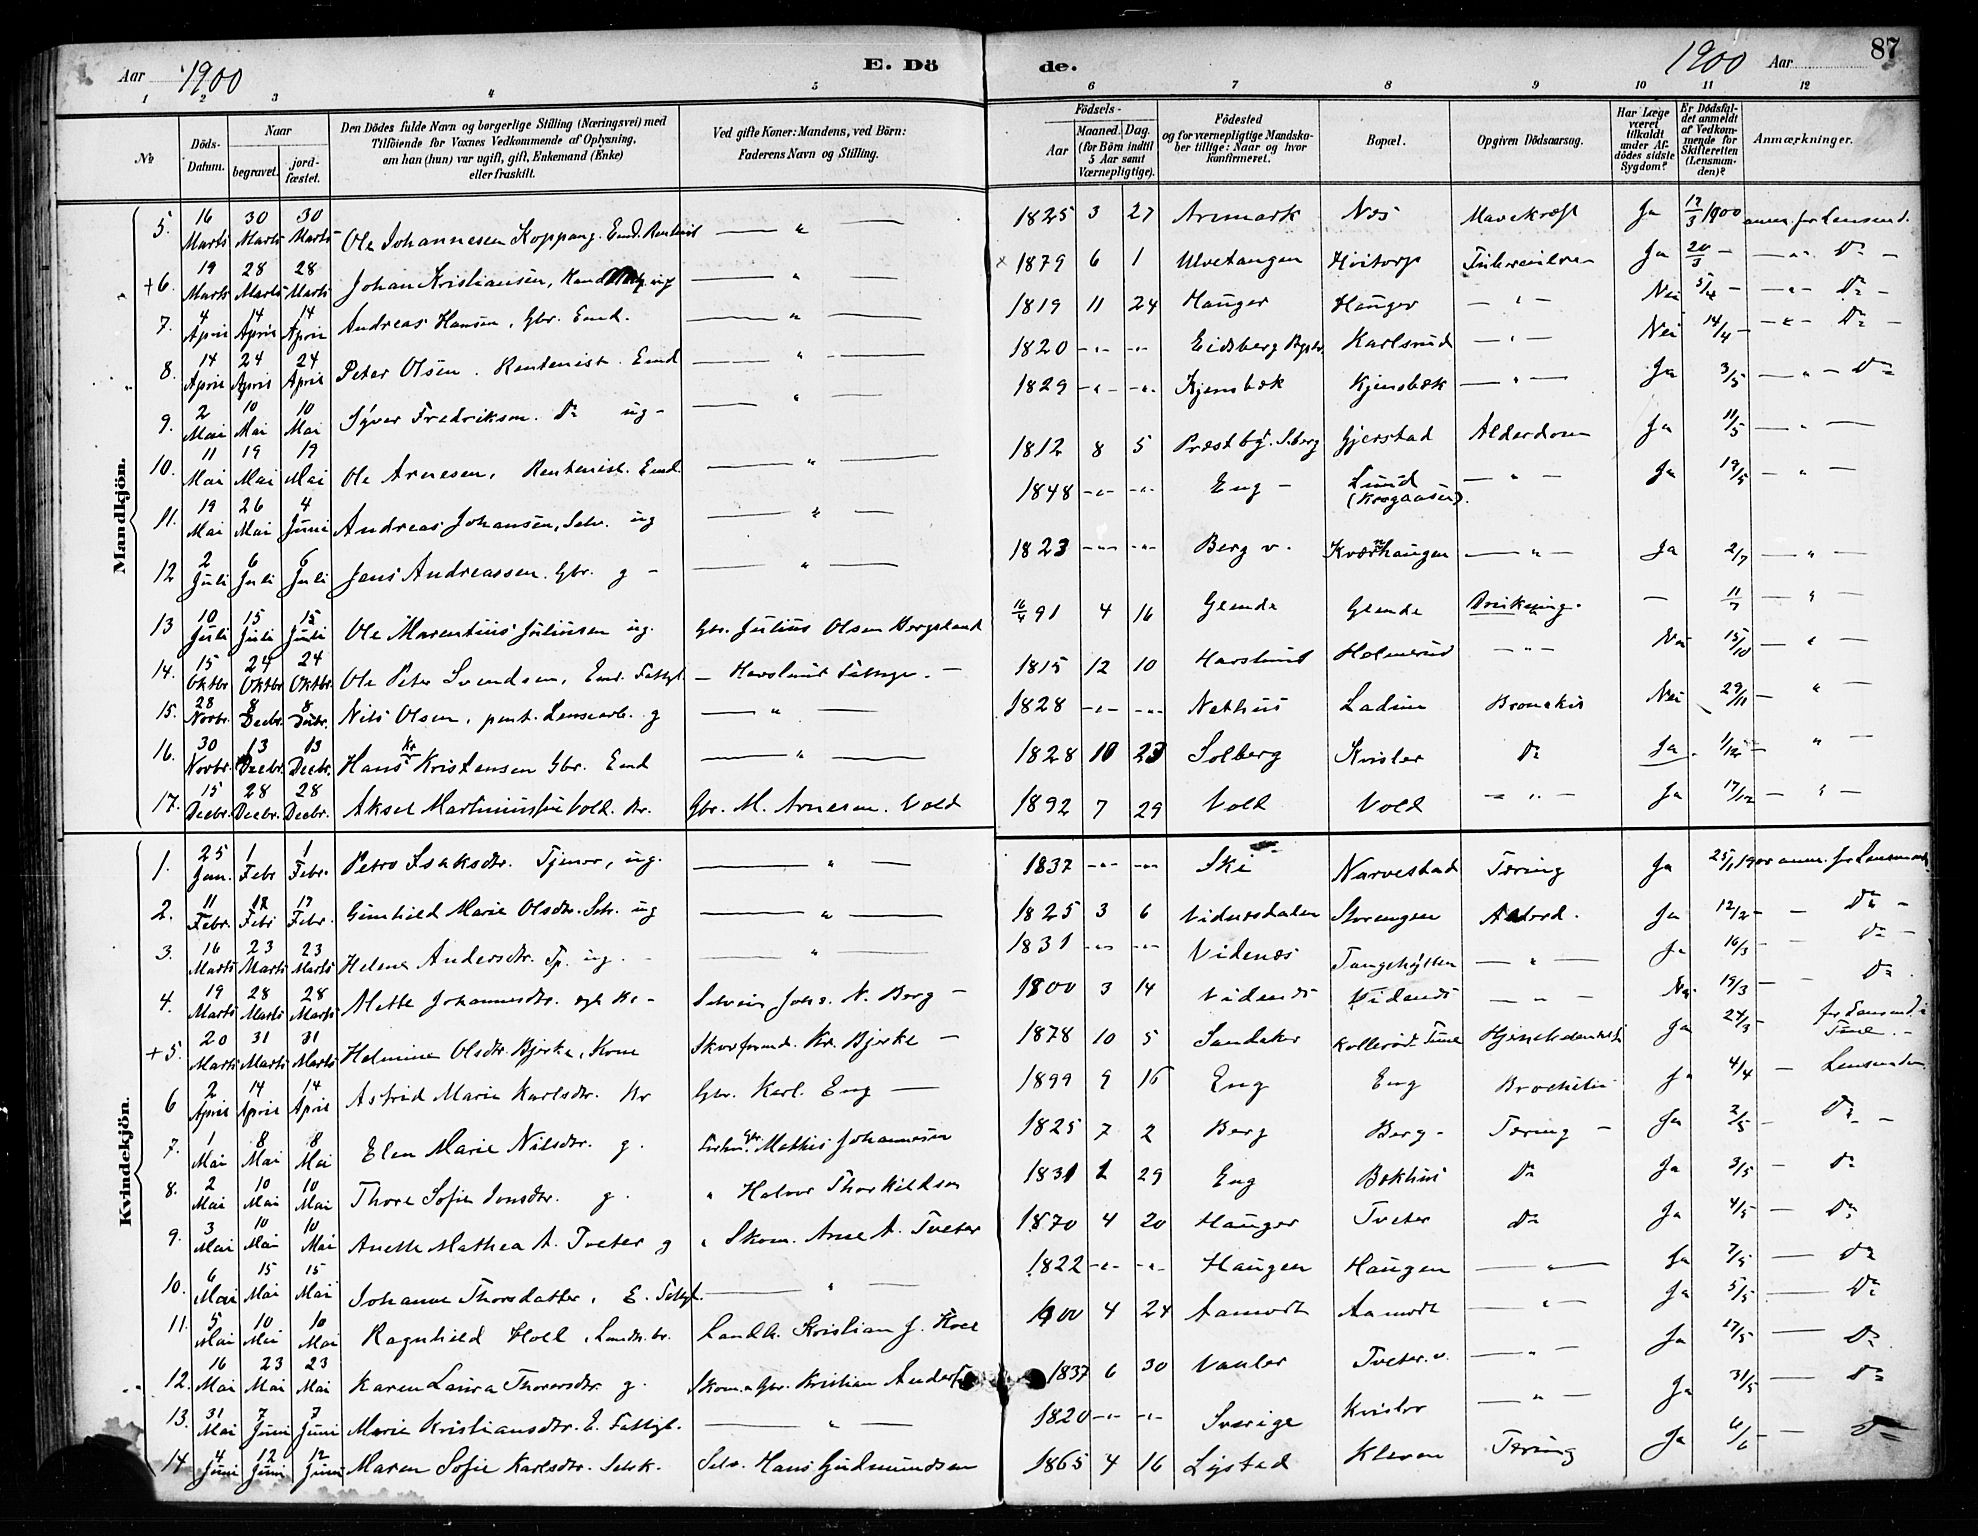 Aar 1900 E. Dö de. 1900 Aar 87
1 2 3 4 5 6 7 8 9 10 11 12
№ | Döds-Datum. | Naar begravet. | jordfæstet. | Den Dödes fulde Navn og borgerlige Stilling (Næringsvei) med Tilföiende for Voxnes Vedkommende af Oplysning, om han (hun) var ugift, gift, Enkemand (Enke) eller fraskilt. | Ved gifte Koner: Mandens, ved Börn: Faderens Navn og Stilling. | Födsels- Aar | Maaned. | Dag. (for Börn indtil 5 Aar samt Værnepligtige). | Födested og for værnepligtige Mandskaber tillige: Naar og hvor konfirmeret. | Bopæl. | Opgiven Dödsaarsag. | Har Læge været tilkaldt under Afdödes sidste Sygdom? | Er Dödsfaldet anmeldt af Vedkommende for Skifteretten (Lensmanden)? | Anmærkninger.
Mandkjön.
5. 16 Marts 30 Marts 30 Marts Ole Johannesen Koppang. Emd. Rentenist — " — 1825 3 27 Aremark Næs Mavekræft Ja 17/3 1900 anm. for Lensmd.
+6. 19 Marts 28 Marts 28 Marts Johan Kristiansen, ug — " — × 1879 6 1 Ulvetangen Hvitorp Ja 20/3 — — " — Do —
7. 4 April 14 April 14 April Andreas Hansen, Gbr. Emd. — " — 1819 11 24 Hauger Hauger — " — Nei 5/4 — — " — Do —
8. 14 April 24 April 24 April Peter Olsen. Rentenist. Emd — " — 1820 — " — — " — Eidsberg Karlsrud — " — Nei 14/4 — — " — Do —
9. 2 Mai 10 Mai 10 Mai Syver Fredriksen. Do ug — — " — 1829 — " — — " — Kjensbæk Kjensbæk — " — Ja 3/5 — " — Do
10. 11 Mai 19 Mai 19 Mai Ole Arnesen, Rentenist. Emd. — " — 1812 8 5 Præstby. Sberg Gjerstad Alderdom Ja 11/5 — " —
11. 19 Mai 26 Mai 4 Juni Andreas Johansen, Selv. ug — " — 1848 — " — — " — Eng — Lund (Krogaasen). — " — Ja 19/5 — " —
12 2 Juli 6 Juli 6 Juli Jens Andreassen. Gbr. g — — " — 1823 — " — — " — Berg v. Kværnhaugen — " — Ja 2/7 — " —
13 10 Juli 15 Juli 15 Juli Ole Marentius Juliusen ug. Gbr. Julius Olsen Bergsland 16/4 91 4 16 Grende Grende Drukning. — 11/7 — " —
14. 15 Oktbr. 24 Oktbr. 24 Oktbr. Ole Peter Svendsen, Emd. Fattigl. — Havslund Fattigv. — 1815 12 10 Harslund Holmerud — " — Nei 15/10 — " —
15. 28 Novbr. 8 Decbr. 8 Decbr. Nils Olsen, pent. Lensearb. g — " — 1828 — " — — " — Nethus Ladim Bronckit Nei 29/11 — " —
16. 30 Novbr. 13 Decbr. 13 Decbr. Hans Kr Kristensen Gbr. Emd — " — 1828 10 23 Solberg Kvisler Do Ja. 1/12 — " —
17. 15 Decbr. 28 Decbr. 28 Decbr. Aksel Martinius Vold. Br. Gbr. M. Arnesen. Vold 1892 7 29 Vold Vold — " — Ja 17/12 — " —
Kvindekjön.
1. 25 Jan. 1 Febr 1 Febr. Petro Isaksdtr. Tjener, ug. — " — 1837 — " — — " — Ski Narvestad Tæring Ja 25/1 1900 anm. for Lensmand
2. 11 Febr. 17 Febr 17 Febr. Gunhild Marie Olsdtr. Selv. ug — " — 1825 3 6 Vidnesdalen Storengen Ja 12/2 — — Do —
3. 16 Marts 23 Marts 23 Marts Helene Andersdtr. Tp. ug. — — " — 1831 — " — — " — Videnæs Tangehytten — " — Ja 16/3 — — Do —
4. 19 Marts 28 Marts 28 Marts Mette Johannesdtr. — Selveier Johs. N. Berg — 1800 3 14 Videnæs Videnæs — " — Nei 19/3 — — Do
+5. 20 Marts 31 Marts 31 Marts Helmine Olsdtr. Bjerke, Kone Skovformd. Kr. Bjerke — 1878 10 5 Sandaker Kollerød Tune Ja 24/3 — for Lensmd. i Tune. —
6 2 April 14 April 14 April Astrid Marie Karlsdtr. Br Gbr. Karl. Eng — 1899 9 16 Eng Eng Ja 4/4 — Lensmanden
7. 1 Mai 8 Mai 8 Mai Elen Marie Nilsdtr. g. Gbr. Mathis Johannesen 1825 7 2 Berg Berg — Tæring — Ja 2/5 — Do —
8. 2 Mai 10 Mai 10 Mai Thore Sofie Jonsdtr. g. " Halvor Thorkildsen 1831 1 29 Eng Bekhus Do Ja 3/5 — Do
9. 3 Mai 10 Mai 10 Mai Anette Mathea A. Tveter g " Skom. Arne A. Tveter 1870 4 20 Hauger Tveter Do Ja 4/5 — Do
10. 6 Mai 15 Mai 15 Mai Johanne Thorsdatter. E. Fattigl. — " — 1822 — " — — " — Haugen Haugen — " — Ja 7/5 — Do
11. 5 Mai 10 Mai 10 Mai Ragnhild Holl, Landh. br. Landh. Kristian J. Holl 1900 4 24 Aamodt Aamodt — " — Ja 5/5 — Do
12. 16 Mai 23 Mai 23 Mai Karen Laura Thorersdtr. g. Skom. Gbr. Kristian Anders 1837 6 30 Vauler Tveter. v. — " — Ja 17/5 — Do
13. 31 Mai 7 Juni 7 Juni Marie Kristiansdtr. E. Fattigl. — " — 1820 — " — — " — Sverige Kvisler — " — Ja 31/5 — Do
14 4 Juni 12 Juni 12 Juni Maren Sofie Karlsdtr. Selvk. Selv. Hans Gudmundsen 1865 4 16 Lystad Kleven Tæring Ja 4/6 — Do